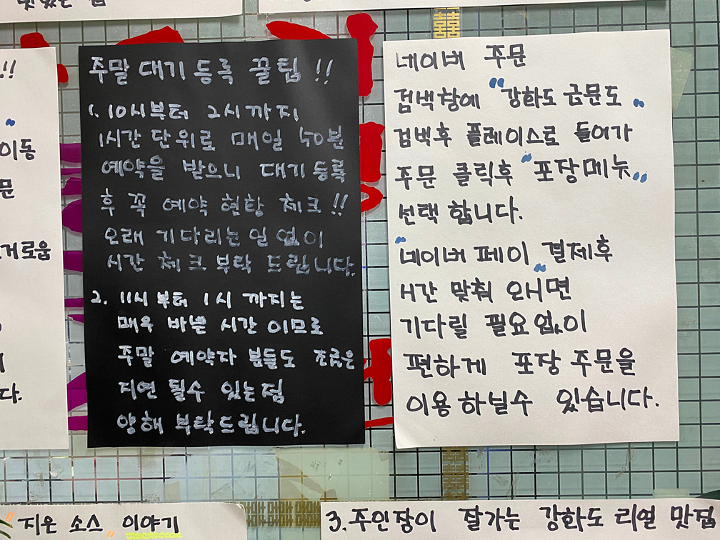 주말 대기 등록 꿀팁 !!
1. 10시부터 2시까지
1시간 단위로 매일 50분
예약을 받으니 대기 등록
후 꼭 예약 현황 체크!!
오래 기다리는일 없이
시간 체크 부탁 드립니다.
2. 11시부터 1시 까지는
매우 바쁜 시간 이므로
주말 예약자 분들도 조금은
지연 될수 있는점
양해 부탁드립니다.
네이버 주문
검색창에 "강화도 금문도"
검색후 플레이스로 들어가
주문 클릭후 "포장메뉴"
선택 합니다.
"네이버 페이" 결제후
시간 맞춰 오시면
기다릴 필요없이
편하게 포장 주문을
이용하실수 있습니다.
!!
이동
문
거로움
다.
"지온 소스" 이야기
3. 주인장이 잘가는 강화도 리얼 맛집
囍